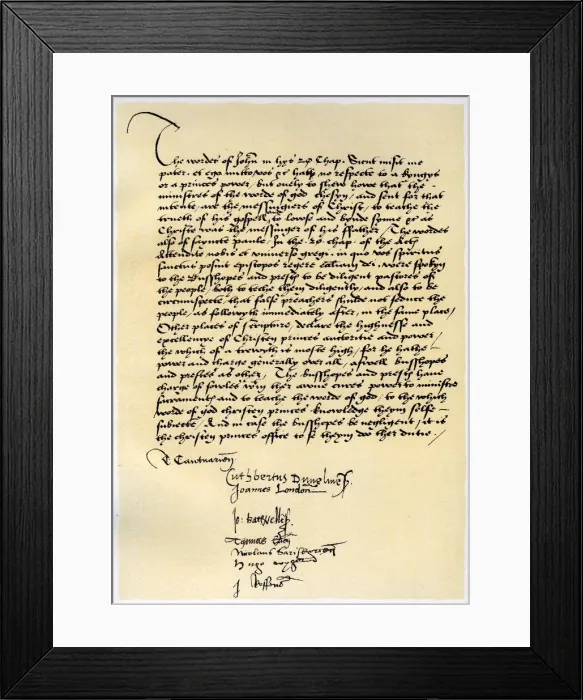 The wordes of John in hys 20 Chap. Sicut misit me
pater. et ego mitto vos &c hath no respecte to a kynges
or a princes power, but onely to shew howe that the
ministres of the worde of god chosyn, and sent for that
intente, are the messingiers of Christ, to teache the
trueth of his gospell, to loose and bynde synne &c as
Christe was the messinger of his ffather, The wordes
also of saynte paule, In the 20 chap. of the Acts
Attendite vobis et universo gregi. in quo vos spiritus
sanctus posuit episcopos regere ecclesiam dei. were spokyn
to the Busshopes and prestes to be diligent pastores of
the people, both to teche them diligently, and also to be
circumspecte, that false preachers shulde not seduce the
people, as followyth immediately after, in the same place,
Other places of scripture, declare the highnesse and
excellencye of Christen princes auctoritie and power,
the which of a trewyth is moste high, for he hathe
power and charge generally over all, aswell busshopes
and prestes as other, The busshopes and prestes have
charge of sowles wtin ther awne cures, power to ministre
sacramentes, and to teache the worde of god, to the which
worde of god christen princes knowledge theym selfe
subiecte, And in case the busshopes be negligent, it is
the christen princes office to se theym doo ther dutie.
T Cantuarien
Cuthbertus Dunelmes
Joannes London
Jo: bathwelles
Thomas Elien
Nicolaus Sarisburien
Hugo
J Roffens